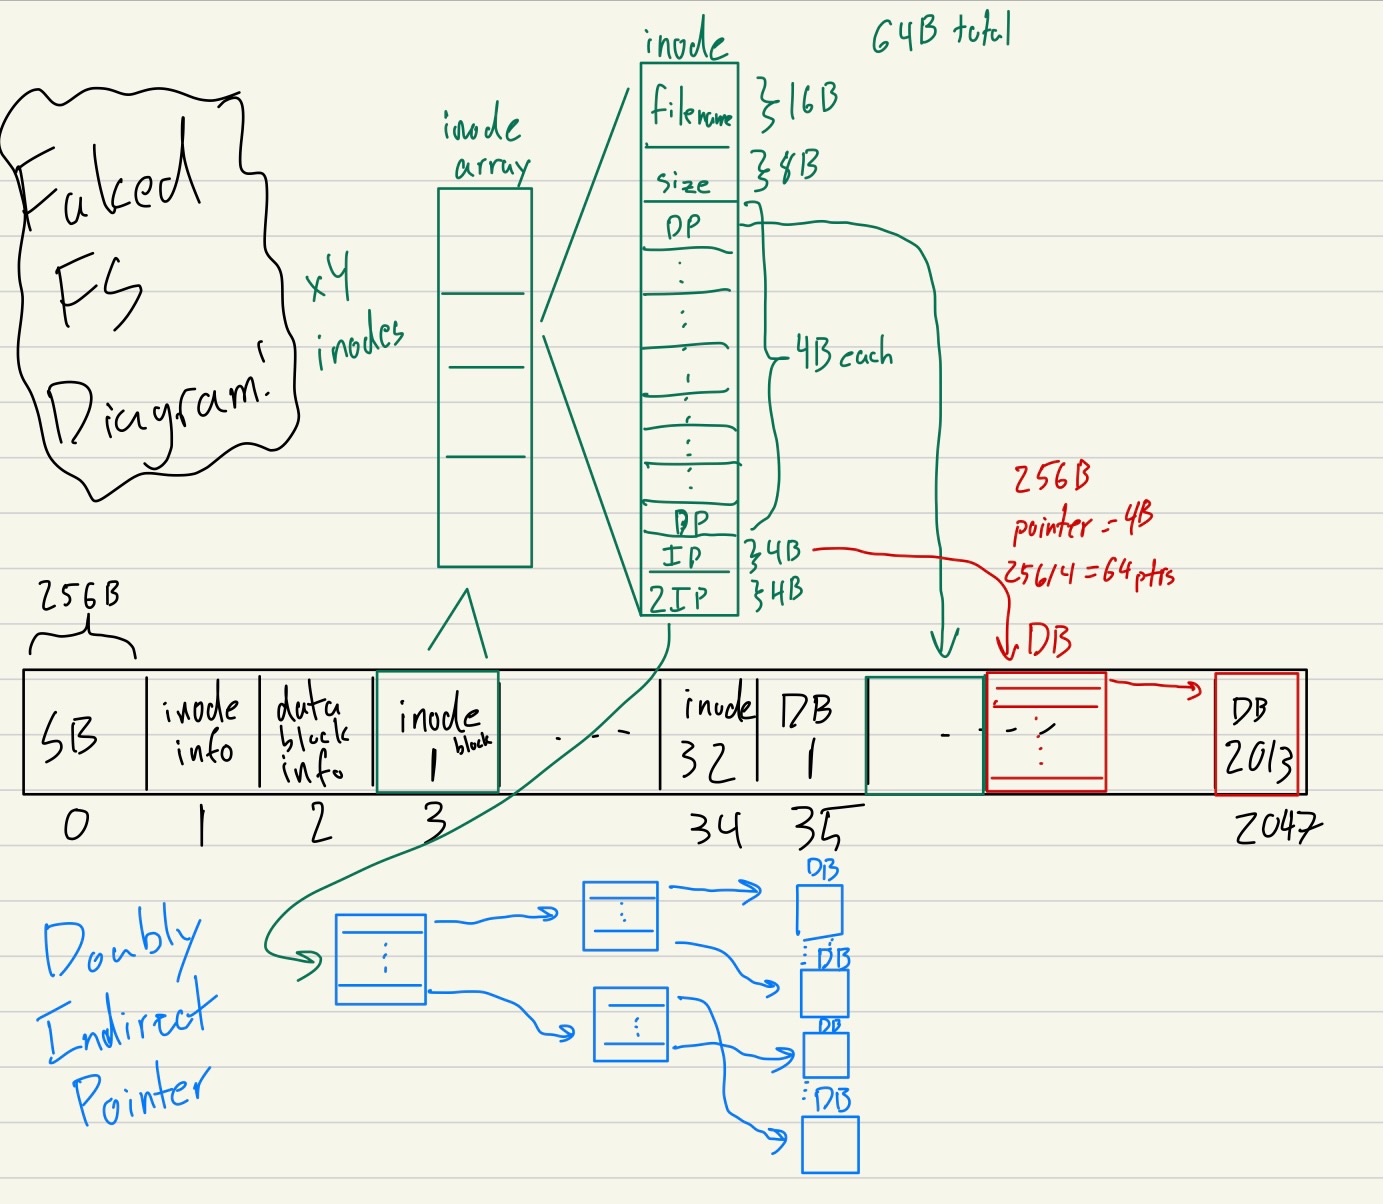 Faked
FS
Diagram!
x4
inodes
inode
array
inode
64B total
filename
}16B
size
}8B
DP
4B each
DP
IP
}4B
2IP
}4B
256B
pointer = 4B
256/4 = 64 ptrs
DB
256B
SB
inode
info
data
block
info
inode
1 block
inode
32
DB
1
DB
2013
0
1
2
3
34
35
2047
Doubly
Indirect
Pointer
DB
DB
DB
DB